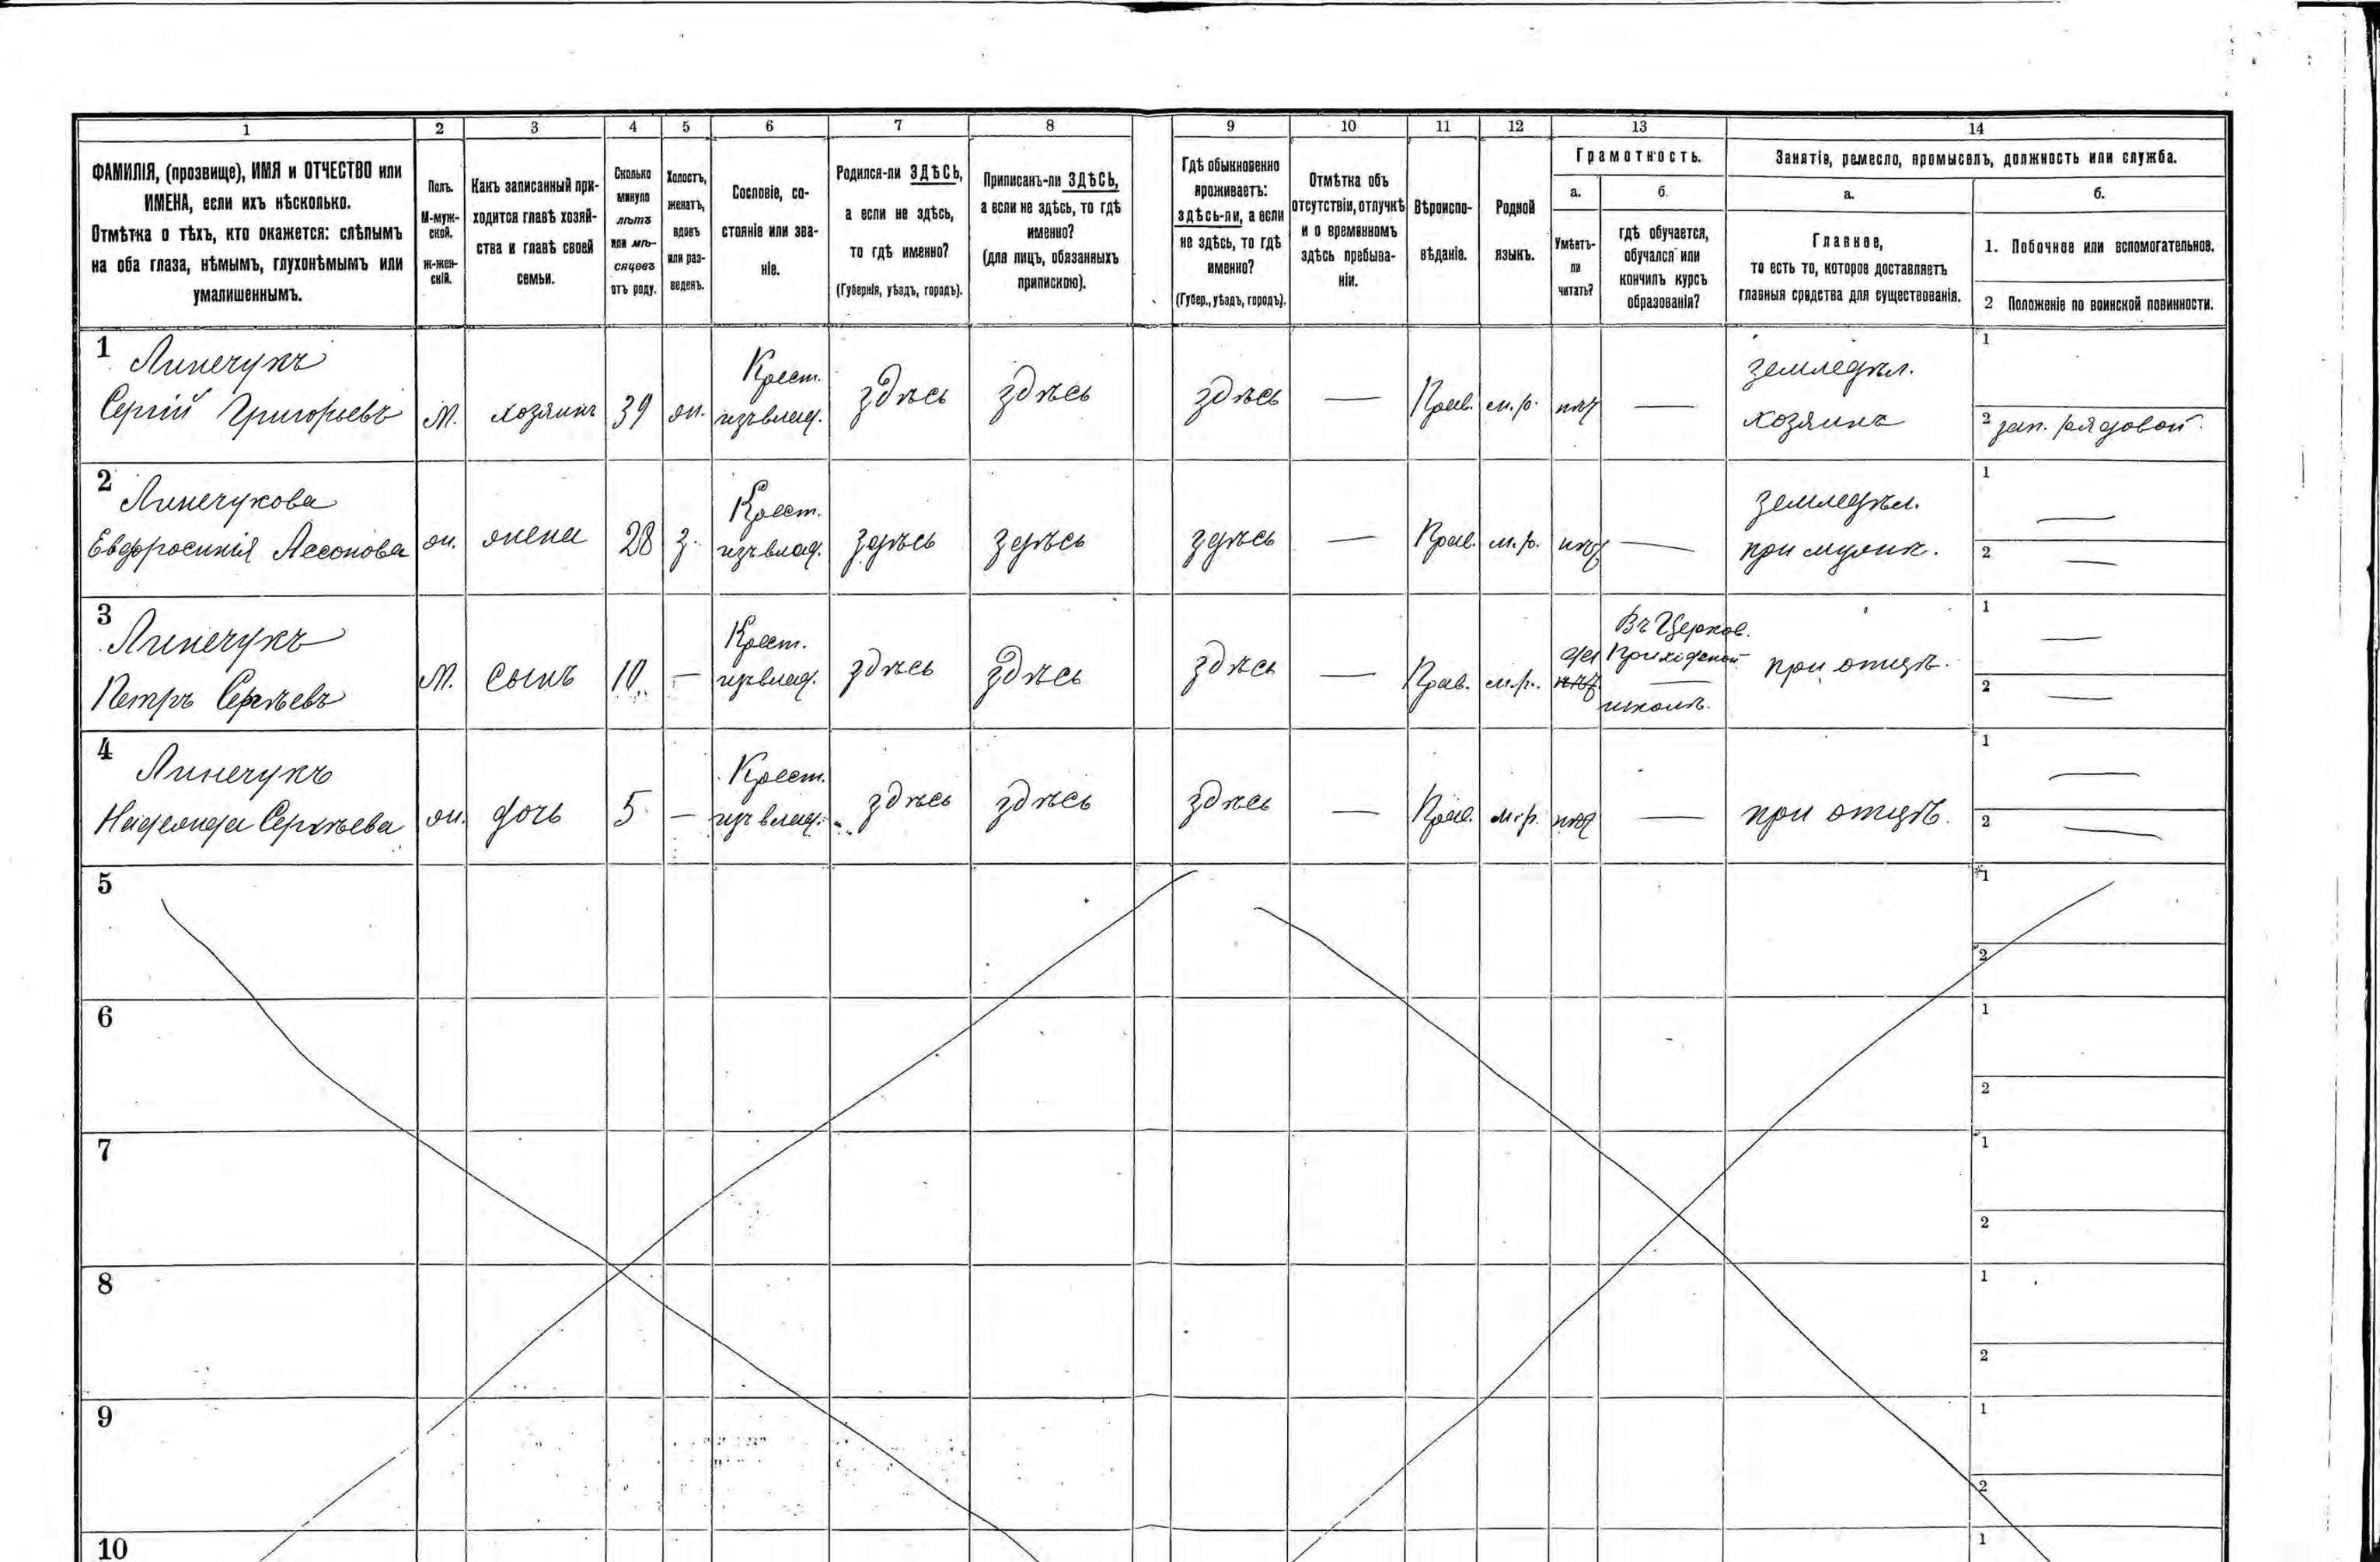 1 2 3 4 5 6 7 8 9 10 11 12 13 14
ФАМИЛІЯ, (прозвище), ИМЯ и ОТЧЕСТВО или
ИМЕНА, если ихъ нѣсколько.
Отмѣтка о тѣхъ, кто окажется: слѣпымъ
на оба глаза, нѣмымъ, глухонѣмымъ или
умалишеннымъ.
Полъ.
М-муж-
ской.
ж-жен-
скій.
Какъ записанный при-
ходится главѣ хозяй-
ства и главѣ своей
семьи.
Сколько
минуло
лѣтъ
или мѣ-
сяцевъ
отъ роду.
Холостъ,
женатъ,
вдовъ
или раз-
веденъ.
Сословіе, со-
стояніе или зва-
ніе.
Родился-ли ЗДѢСЬ,
а если не здѣсь,
то гдѣ именно?
(Губернія, уѣздъ, городъ).
Приписанъ-ли ЗДѢСЬ,
а если не здѣсь, то гдѣ
именно?
(для лицъ, обязанныхъ
припискою).
Гдѣ обыкновенно
проживаетъ:
здѣсь-ли, а если
не здѣсь, то гдѣ
именно?
(Губер., уѣздъ, городъ).
Отмѣтка объ
отсутствіи, отлучкѣ
и о временномъ
здѣсь пребыва-
ніи.
Вѣроиспо-
вѣданіе.
Родной
языкъ.
Грамотность.
а.
Умѣетъ-
ли
читать?
б.
гдѣ обучается,
обучался или
кончилъ курсъ
образованія?
Занятіе, ремесло, промыселъ, должность или служба.
а.
Главное,
то есть то, которое доставляетъ
главныя средства для существованія.
б.
1. Побочное или вспомогательное.
2 Положеніе по воинской повинности.
1 Линечукъ
Сергій Григорьевъ
М. хозяинъ 39 ж.
Крест.
изъ влад.
здѣсь здѣсь здѣсь — Прав. м.р. нѣт —
земледѣл.
хозяинъ
1
2 зап. рядовой.
2 Линечукова
Евфросинія
ж. жена 28 з.
Крест.
изъ влад.
здѣсь здѣсь здѣсь — Прав. м.р. нѣт —
земледѣл.
при мужѣ.
1 —
2 —
3 Линечукъ
Петръ Сергѣевъ
М. сынъ 10 —
Крест.
изъ влад.
здѣсь здѣсь здѣсь — Прав. м.р.
да
нѣт
Въ Церков.
Приходской
школѣ.
при отцѣ.
1 —
2 —
4 Линечукъ
Надежда Сергѣева
ж. дочь 5 —
Крест.
изъ влад.
здѣсь здѣсь здѣсь — Прав. м.р. нѣт —
при отцѣ.
1 —
2 —
5 1
2
6 1
2
7 1
2
8 1
2
9 1
2
10 1